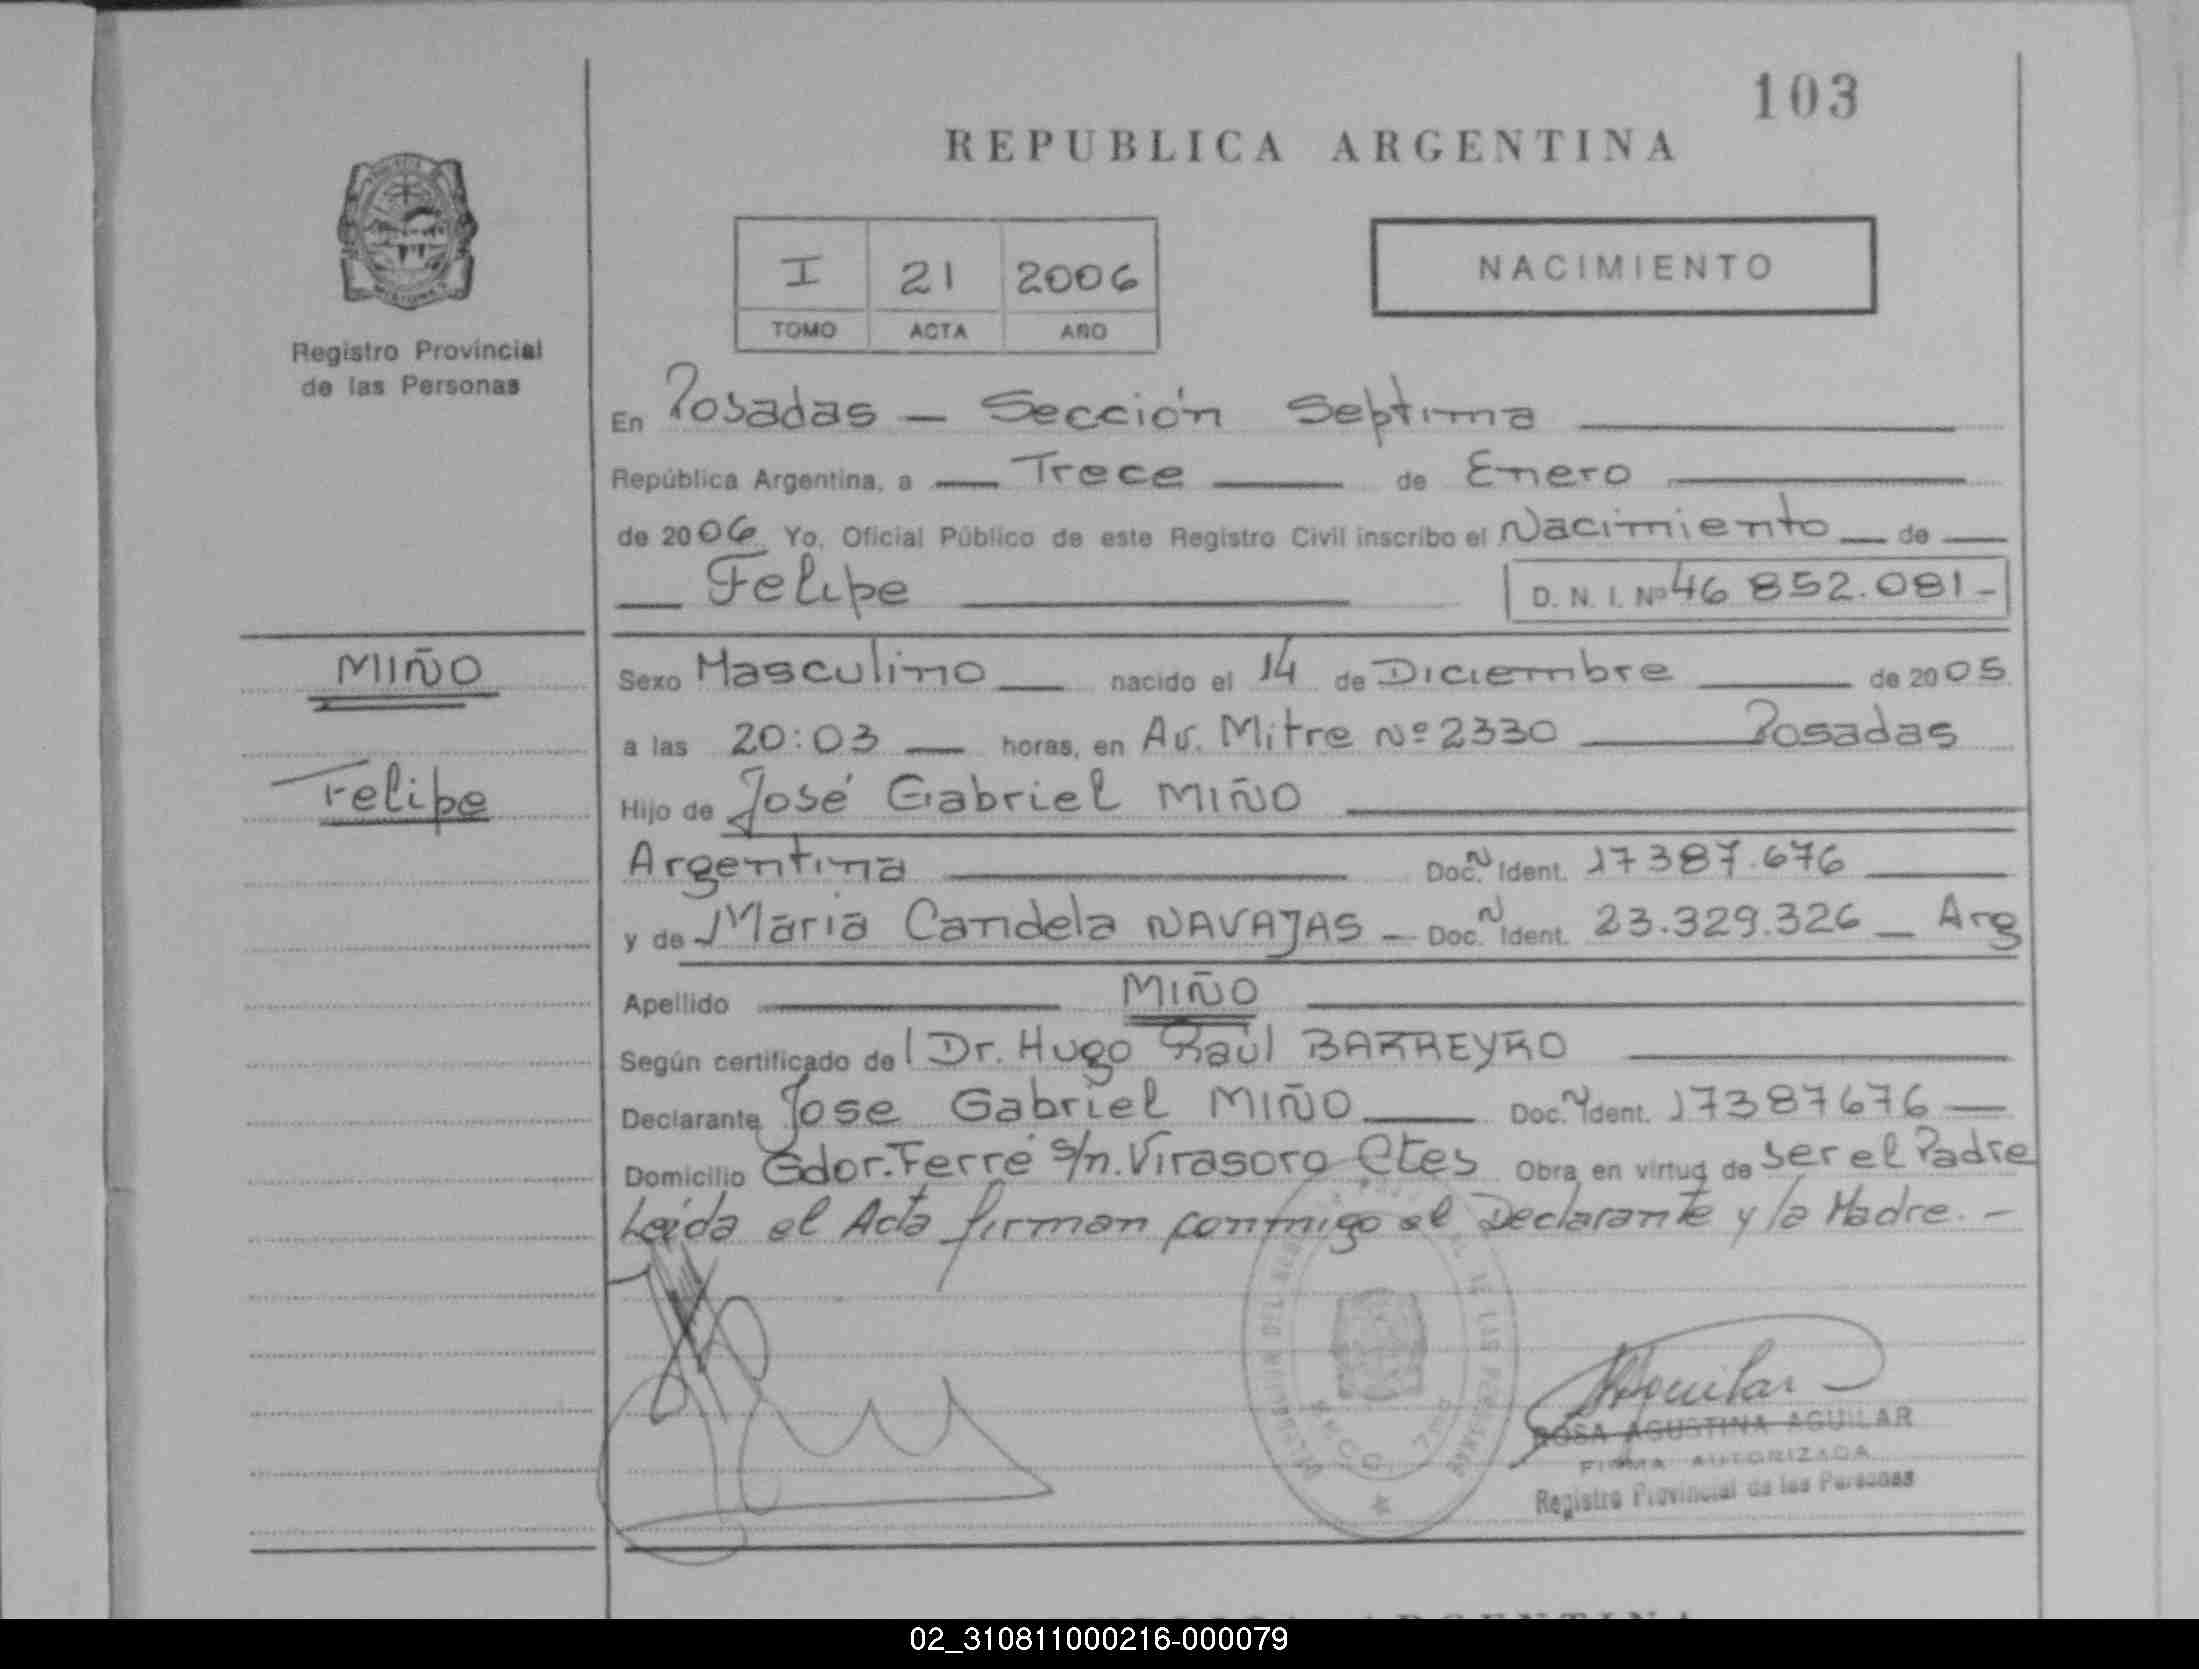 103
REPUBLICA ARGENTINA
I 21 2006
TOMO ACTA AÑO
NACIMIENTO
Registro Provincial
de las Personas
En Posadas — Sección Septima
República Argentina, a — Trece — de Enero
de 2006 Yo, Oficial Público de este Registro Civil inscribo el Nacimiento — de —
— Felipe — D. N. I. Nº 46 852.081 -
MIÑO
Sexo Masculino — nacido el 14 de Diciembre — de 2005
a las 20:03 — horas, en Av. Mitre Nº 2330 — Posadas
Felipe
Hijo de José Gabriel MIÑO
Argentina — Doc. N Ident. 17387.676 —
y de Maria Candela NAVAJAS — Doc. N Ident. 23.329.326 — Arg
Apellido — MIÑO —
Según certificado del Dr. Hugo Raúl BARREYRO —
Declarante Jose Gabriel MIÑO — Doc. N Ident. 17387676 —
Domicilio Gdor. Ferré s/n. Virasoro Ctes Obra en virtud de ser el Padre
Leída el Acta firman conmigo el Declarante y la Madre. -
Aguilar
ROSA AGUSTINA AGUILAR
FIRMA AUTORIZADA
Registro Provincial de las Personas
02_310811000216-000079